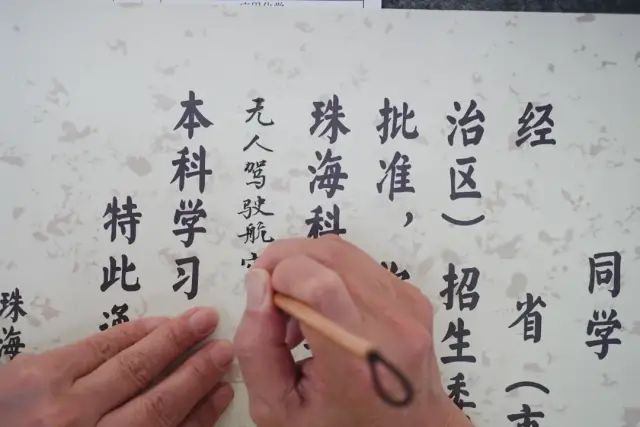 同学
经 省（市
治区）招生委
批准，
珠海科
无人驾驶航
本科学习
特此通
珠海